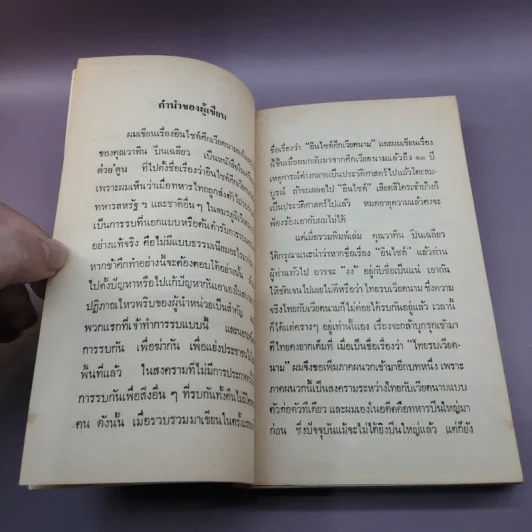 คำนำของผู้เขียน
ผมเขียนเรื่องอินไซด์ศึกเวียดนามลงใน
ของคุณวาทิน ปิ่นเฉลียว เป็นหนังสือใน
ต่วย'ตูน ที่ไปตั้งชื่อเรื่องว่าอินไซด์ศึกเวียด
เพราะผมเห็นว่าเมื่อทหารไทยถูกส่งตัวไป
ทหารสหรัฐ ฯ และชาติอื่นๆ ในสมรภูมิเวียด
เป็นการรบที่นอกแบบหรือต้นตำรับการรบ
อย่างแท้จริง คือไม่มีแบบธรรมเนียมอะไร
หากข้าศึกทำอย่างนี้จะต้องตอบโต้อย่างนั้น
ไปตั้งปัญหาหรือไปแก้ปัญหากันเอาเอง
ปฏิภาณไหวพริบของผู้นำหน่วยเป็นสำคัญ
พวกแรกที่เข้าทำการรบแบบนี้ และนอก
การรบกัน เพื่อฆ่ากัน เพื่อแย่งประชาชน
พื้นที่แล้ว ในสงครามที่ไม่มีการประกาศ
การรบกันเพื่อสิ่งอื่น ๆ ที่รบกันทั้งคืน
คน ดังนั้น เมื่อรวบรวมมาเขียนในครั้งแรก
ชื่อเรื่องว่า "อินไซด์ศึกเวียดนาม" และผมเขียนเรื่อง
นี้ขึ้นเมื่อผมกลับมาจากศึกเวียดนามแล้วถึง ๑๓ ปี
เหตุการณ์ดังกล่าวเป็นประวัติศาสตร์ไปแล้วโดยสม-
บูรณ์ ถ้าจะเผลอไป "อินไซด์" เสียดสีใครเข้าบ้างก็
เป็นประวัติศาสตร์ไปแล้ว หมดอายุความแล้วคงจะ
ฟ้องร้องเอากับผมไม่ได้
แต่เมื่อรวมพิมพ์เล่ม คุณวาทิน ปิ่นเฉลียว
ได้กรุณาแนะนำว่าหากชื่อเรื่อง "อินไซด์" แล้วท่าน
ผู้อ่านทั่วไป อาจจะ "งง" อยู่กับชื่อเป็นแน่ เอากัน
ให้ชัดเจนไปเลยไม่ดีหรือว่า ไทยรบเวียดนาม ซึ่งความ
จริงไทยกับเวียดนามก็ไม่ค่อยได้รบกันอยู่แล้ว เวลานี้
ก็ได้แต่คราง ๆ อยู่เท่านั้นเอง เรื่องจะกล้าบุกรุกเข้ามา
ก็ไทยคงยากเต็มที่ เมื่อเป็นชื่อเรื่องว่า "ไทยรบเวียด-
นาม" ผมจึงขอเพิ่มภาคผนวกเข้ามาอีกบทหนึ่ง เพราะ
ภาคผนวกนี้เป็นสงครามระหว่างไทยกับเวียดนามแบบ
ตัวต่อตัวทีเดียว และผมเองในอดีตคือทหารปืนใหญ่มา
ก่อน ซึ่งปัจจุบันแม้จะไม่ได้ยิงปืนใหญ่แล้ว แต่ก็ยัง